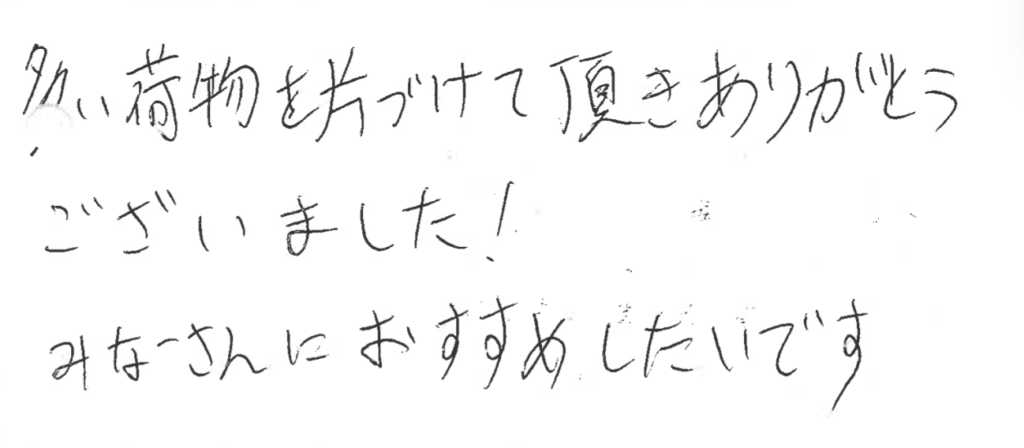 多い荷物を片づけて頂きありがとう
ございました!
みなさんにおすすめしたいです